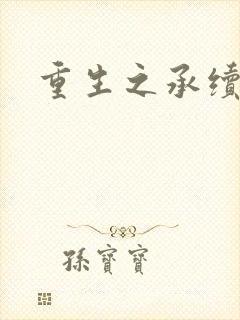 重生之承續
孫寶寶